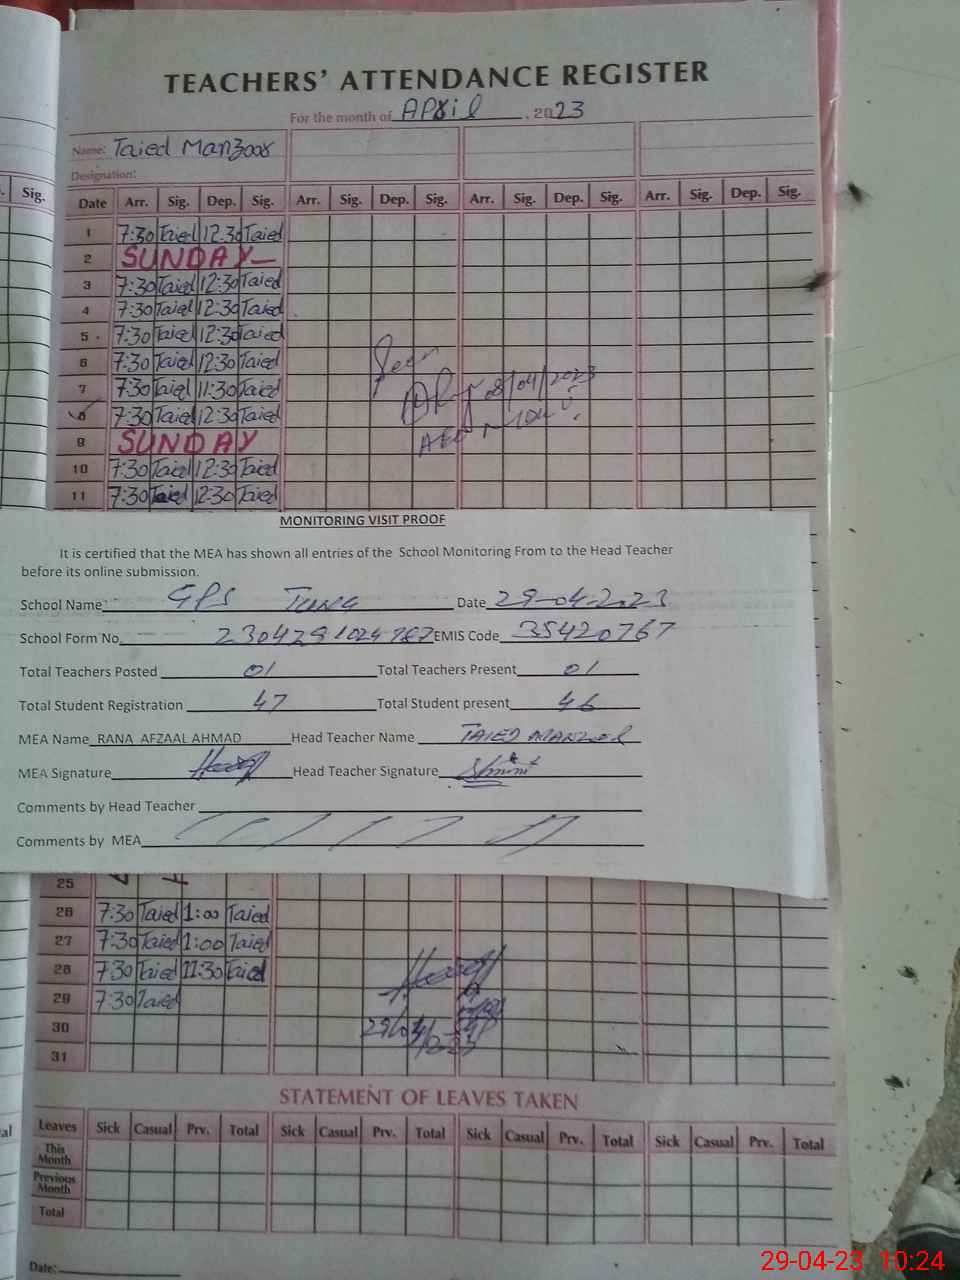 TEACHERS' ATTENDANCE REGISTER
For the month of April, 2023
Name: Taied Manzoor
Designation:
Sig.
Date Arr. Sig. Dep. Sig. Arr. Sig. Dep. Sig. Arr. Sig. Dep. Sig. Arr. Sig. Dep. Sig.
1 7:30 Taied 12:30 Taied
2 SUNDAY
3 7:30 Taied 12:30 Taied
4 7:30 Taied 12:30 Taied
5 7:30 Taied 12:30 Taied
6 7:30 Taied 12:30 Taied
7 7:30 Taied 11:30 Taied
8 7:30 Taied 12:30 Taied
9 SUNDAY
10 7:30 Taied 12:30 Taied
11 7:30 Taied 12:30 Taied
Seen
08/04/2023
AEO
MONITORING VISIT PROOF
It is certified that the MEA has shown all entries of the School Monitoring From to the Head Teacher
before its online submission.
School Name GPS Date 29-04-2023
School Form No. 2304291024787 EMIS Code 35420767
Total Teachers Posted 01 Total Teachers Present 01
Total Student Registration 47 Total Student present 46
MEA Name RANA AFZAAL AHMAD Head Teacher Name TAIED MANZOOR
MEA Signature Head Teacher Signature
Comments by Head Teacher
Comments by MEA
25
26 7:30 Taied 1:00 Taied
27 7:30 Taied 1:00 Taied
28 7:30 Taied 11:30 Taied
29 7:30 Taied
30
31
29/04/2023
STATEMENT OF LEAVES TAKEN
Leaves Sick Casual Prv. Total Sick Casual Prv. Total Sick Casual Prv. Total Sick Casual Prv. Total
This Month
Previous Month
Total
Date:
29-04-23 10:24